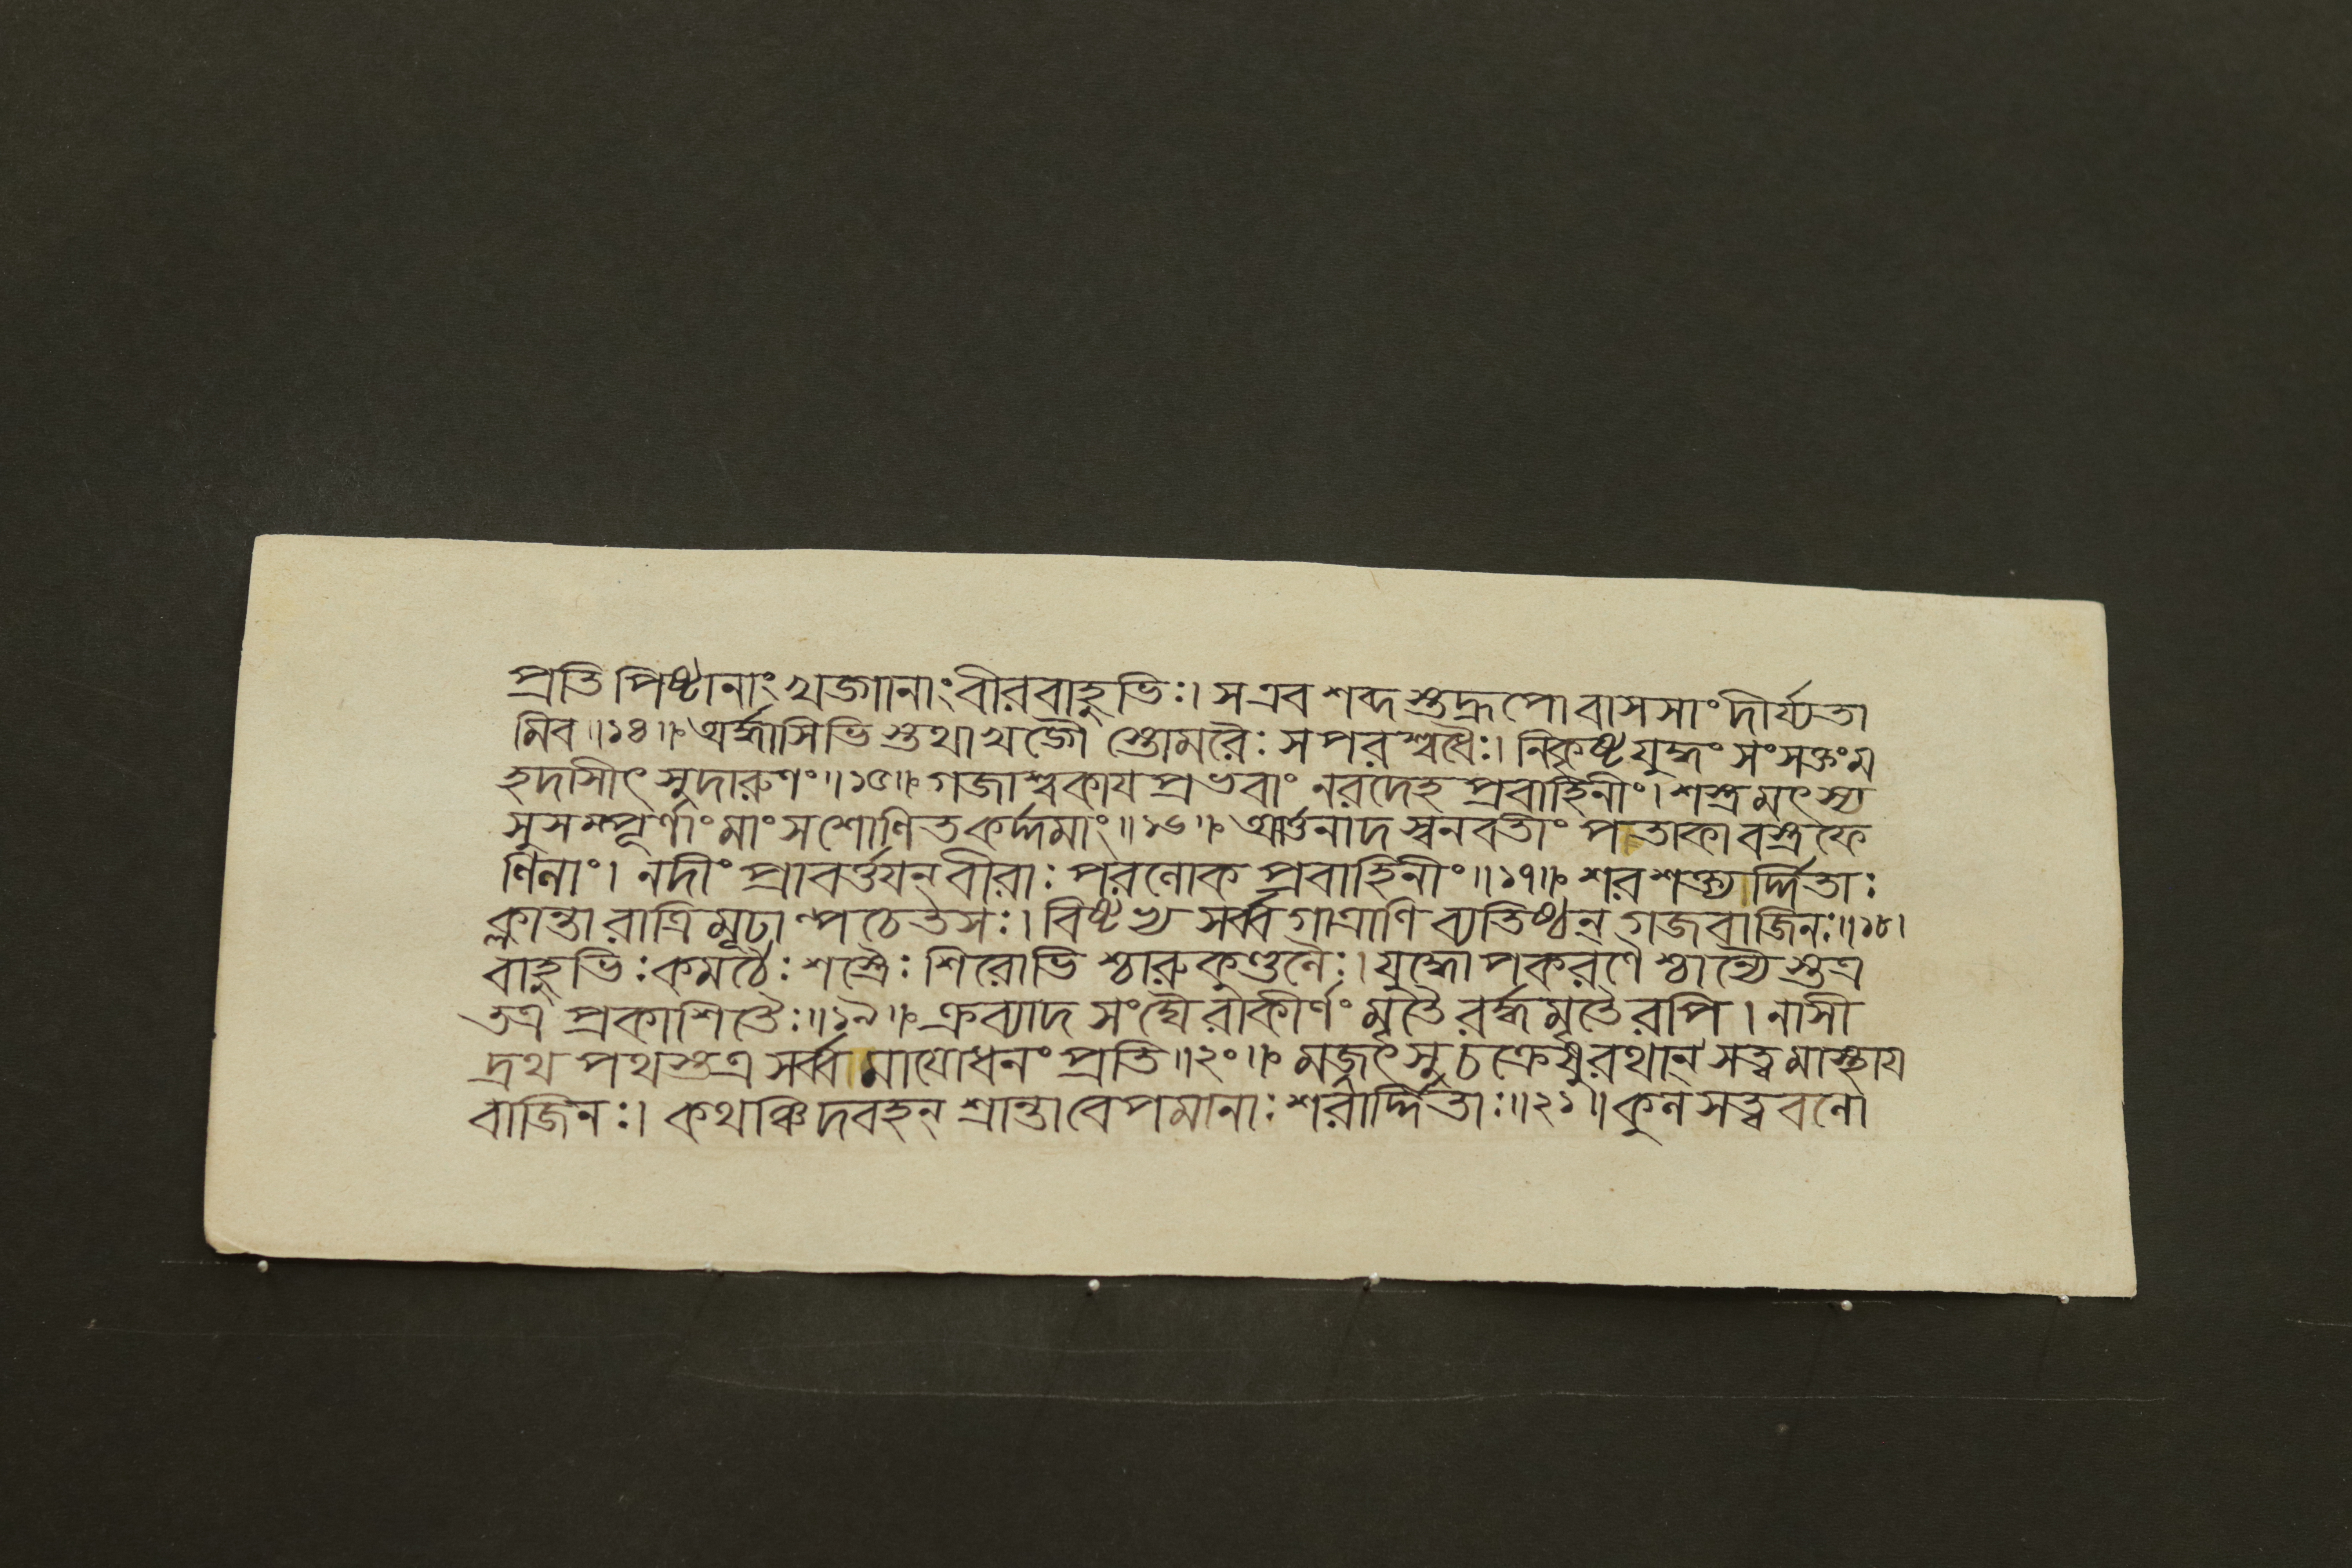 প্রতিপিষ্টানাং খড্গানাং বীরবাহুভিঃ। স এব শব্দস্তদ্রূপো বাসসাং দীর্য্যতা
মিব॥১৪॥ অর্দ্ধাসিভিস্তথা খড্গৈস্তোমরৈঃ সপরশ্বধৈঃ। নিকৃষ্টযুদ্ধং সংসক্তং ম
হদাসীৎ সুদারুণং॥১৫॥ গজাশ্বকায়প্রভবাং নরদেহপ্রবাহিনীং। শস্ত্রমৎস্য
সুসম্পূর্ণাং মাংসশোণিতকর্দ্দমাং॥১৬॥ আর্ত্তনাদস্বনবতাং পতাকাবস্ত্রফে
ণিনাং। নদীং প্রাবর্ত্তয়ন্ বীরাঃ পরলোকপ্রবাহিনীং॥১৭॥ শরশক্ত্যর্দ্দিতাঃ
ক্লান্তা রাত্রিমূঢাল্পচেতসঃ। বিষ্টভ্য সর্ব্বগাত্রাণি ব্যতিষ্ঠন্ গজবাজিনঃ॥১৮।
বাহুভিঃ কমঠৈঃ শস্ত্রৈঃ শিরোভিশ্চারুকুণ্ডলৈঃ। যুদ্ধোপকরণৈশ্চান্যৈস্তত্র
তত্র প্রকাশিতৈঃ॥১৯॥ ক্রব্যাদসংঘৈরাকীর্ণং মৃতৈরর্দ্ধমৃতৈরপি। নাসী
দ্রথপথস্তত্র সর্ব্বমাযোধনং প্রতি॥২০॥ মজ্জৎসু চক্রেষু রথান্ সত্ত্বমাস্থায়
বাজিনঃ। কথঞ্চিদবহন্ শ্রান্তা বেপমানাঃ শরার্দ্দিতাঃ॥২১॥ কুলসত্ত্ববলো